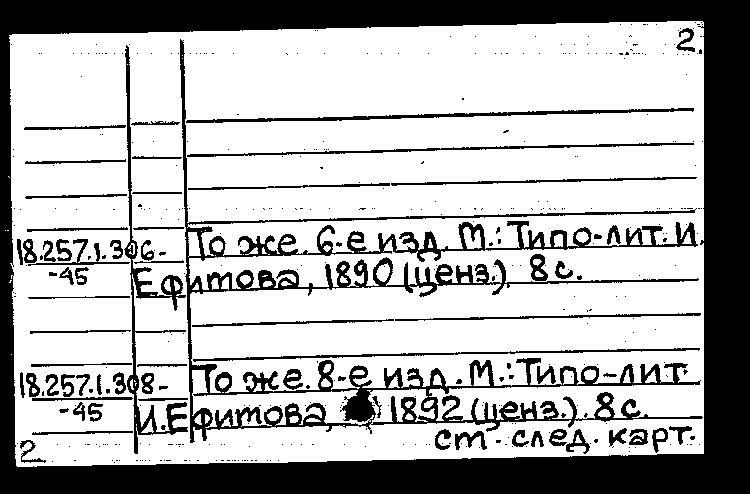 2.
18.257.1.306- То же. 6-е изд. М.: Типо-лит. И.
-45 Ефитова, 1890 (ценз.). 8 с.
18.257.1.308- То же. 8-е изд. М.: Типо-лит.
-45 И.Ефитова, 1892 (ценз.). 8 с.
ст. след. карт.
2